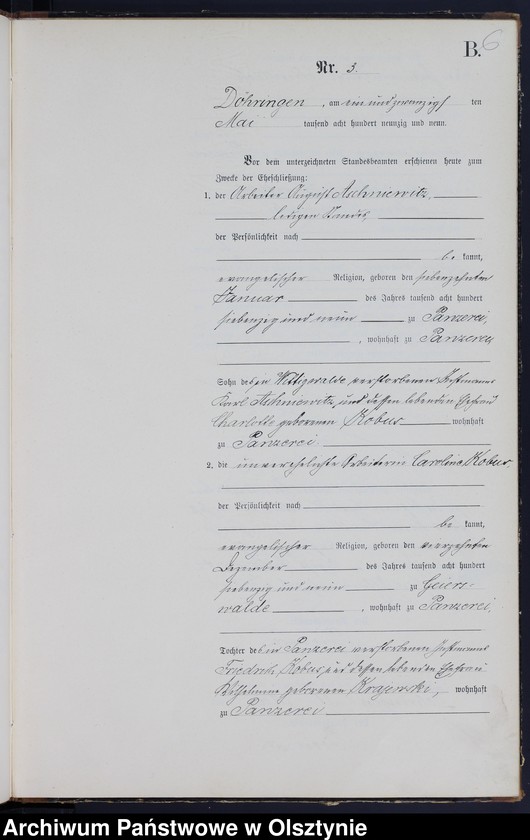 B. 6
Nr. 3.
Döhringen, am ein und zwanzigsten
Mai tausend acht hundert neunzig und neun.
Vor dem unterzeichneten Standesbeamten erschienen heute zum
Zwecke der Eheschließung:
1. der Arbeiter August Aschmewitz,
ledigen Standes,
der Persönlichkeit nach
be kannt,
evangelischer Religion, geboren den siebenzehnten
Januar des Jahres tausend acht hundert
siebenzig und neun zu Panzerei,
, wohnhaft zu Panzerei
Sohn des in Wittigwalde verstorbenen Instmanns
Karl Aschmewitz, und dessen lebenden Ehefrau
Charlotte geborenen Kobus wohnhaft
zu Panzerei.
2. die unverehelichte Arbeiterin Carolina Kobus,
der Persönlichkeit nach
be kannt,
evangelischer Religion, geboren den vierzehnten
Dezember des Jahres tausend acht hundert
siebenzig und neun zu Geiers-
walde, wohnhaft zu Panzerei
Tochter des in Panzerei verstorbenen Instmanns
Friedrich Kobus, und dessen lebenden Ehefrau
Wilhelmine geborenen Krajewski, wohnhaft
zu Panzerei
Archiwum Państwowe w Olsztynie